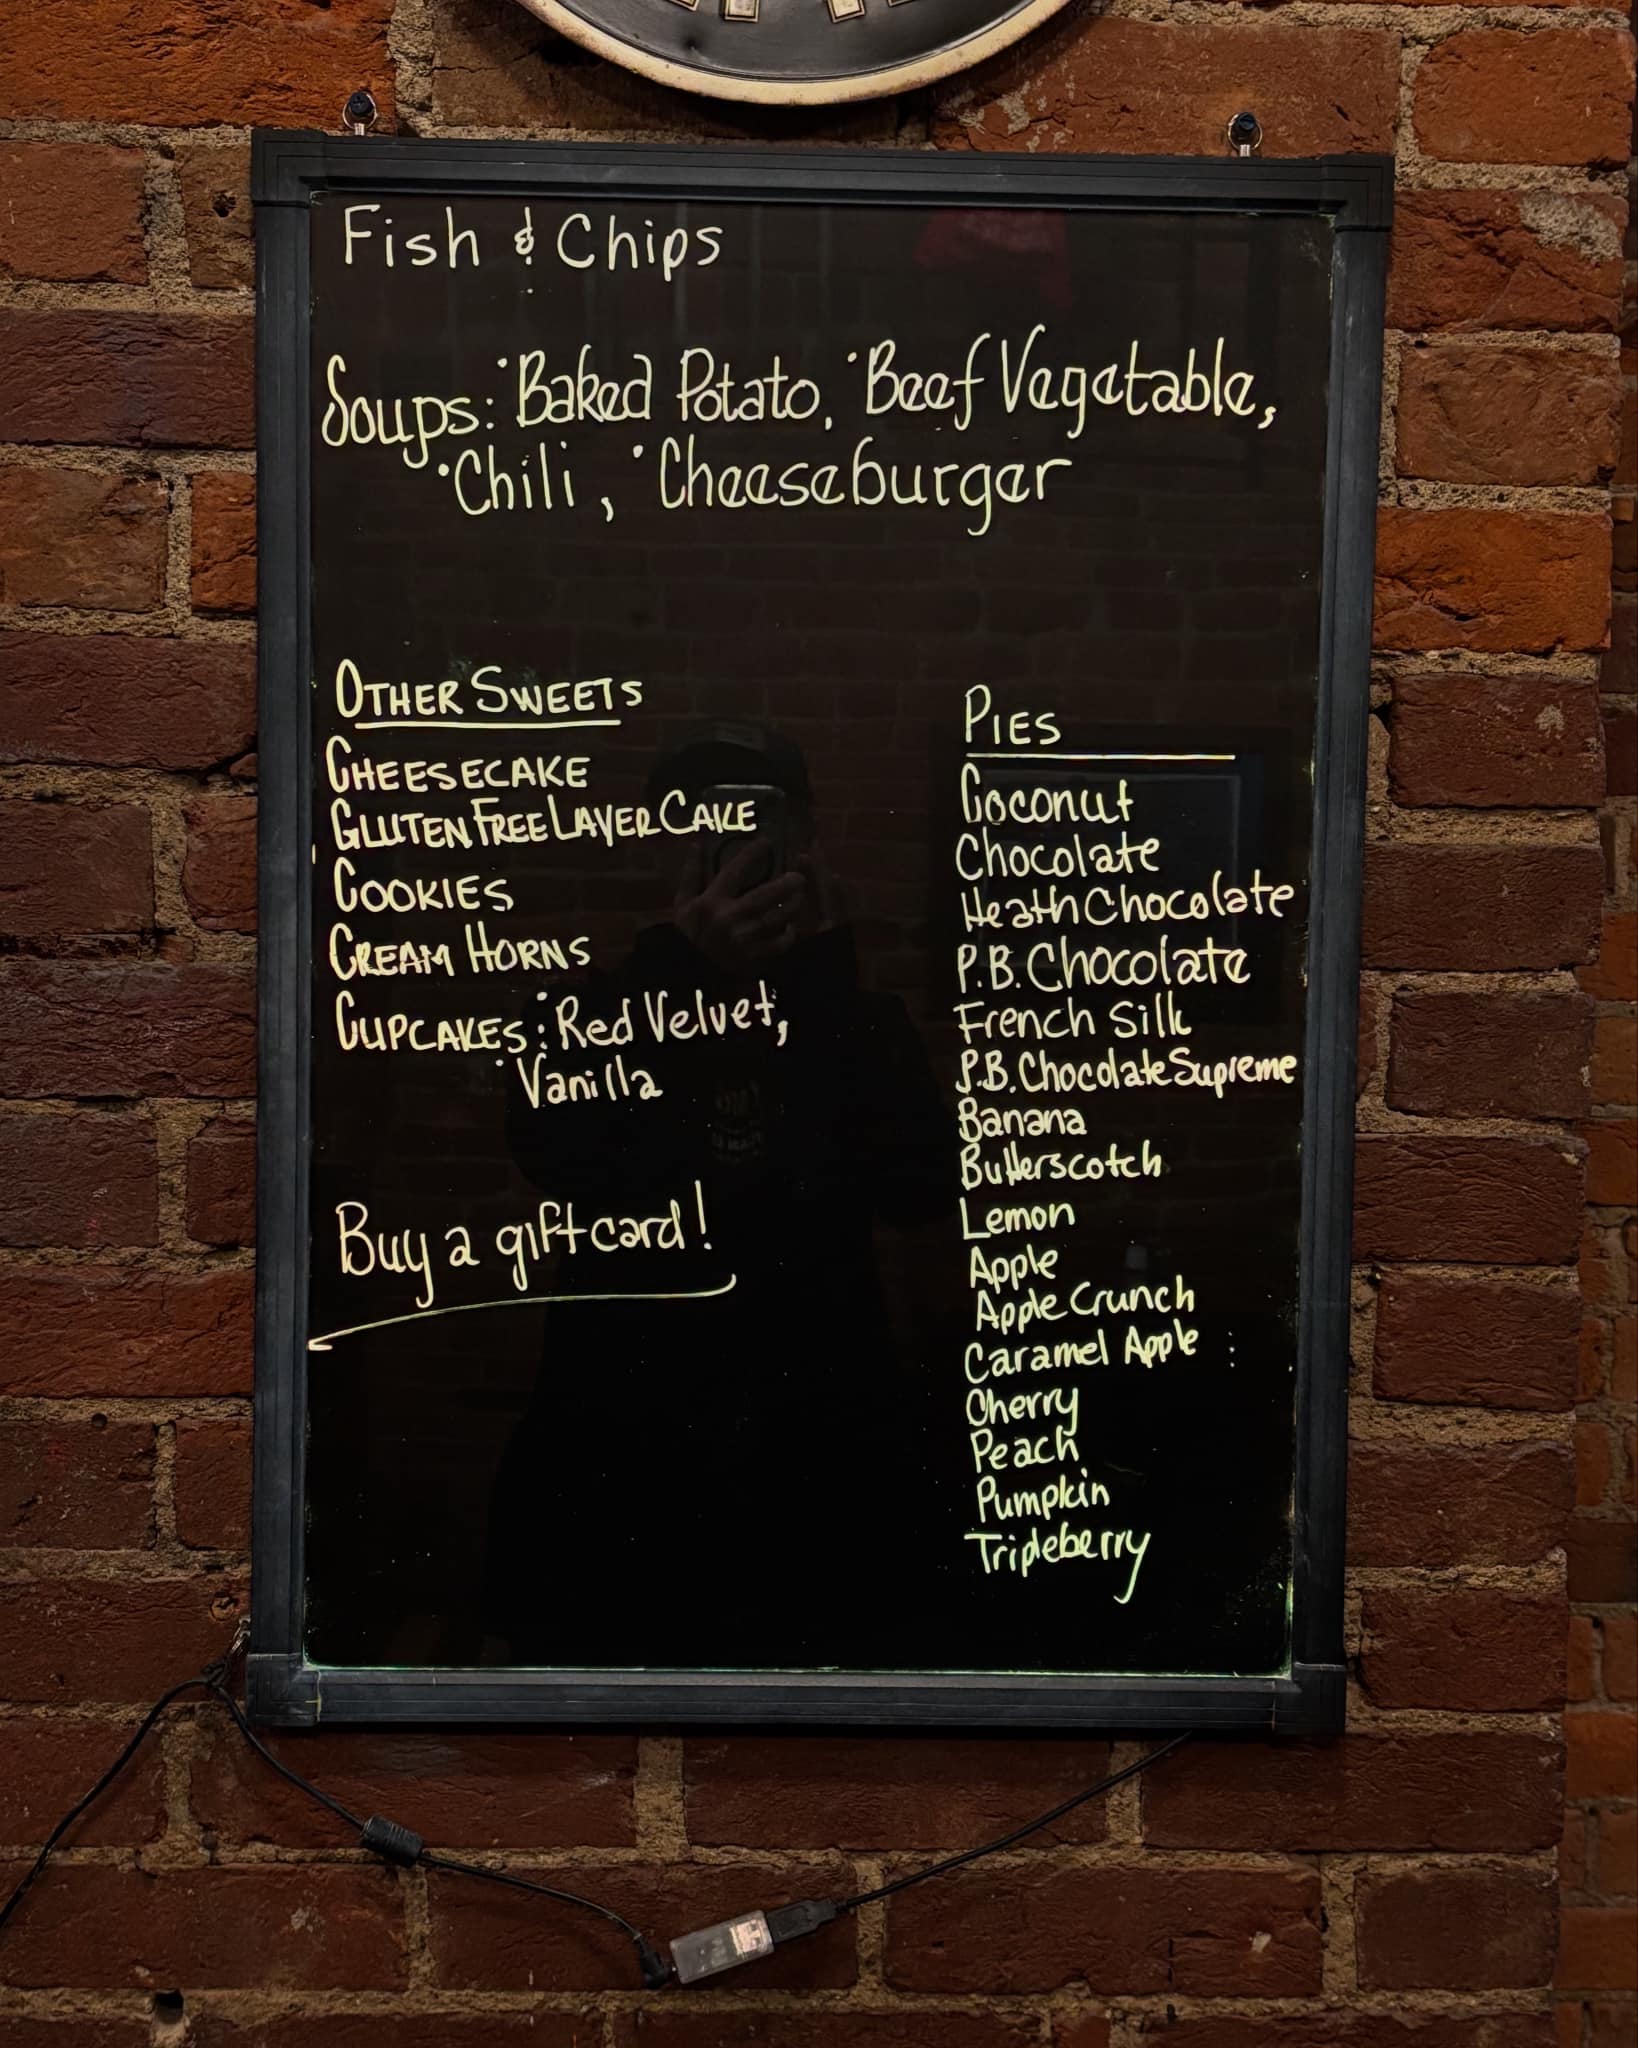 Fish & Chips
Soups: •Baked Potato, •Beef Vegetable,
•Chili, •Cheeseburger
OTHER SWEETS
CHEESECAKE
GLUTEN FREE LAYER CAKE
COOKIES
CREAM HORNS
CUPCAKES: •Red Velvet,
•Vanilla
Buy a giftcard!
PIES
Coconut
Chocolate
Heath Chocolate
P.B. Chocolate
French Silk
P.B. Chocolate Supreme
Banana
Butterscotch
Lemon
Apple
Apple Crunch
Caramel Apple
Cherry
Peach
Pumpkin
Tripleberry